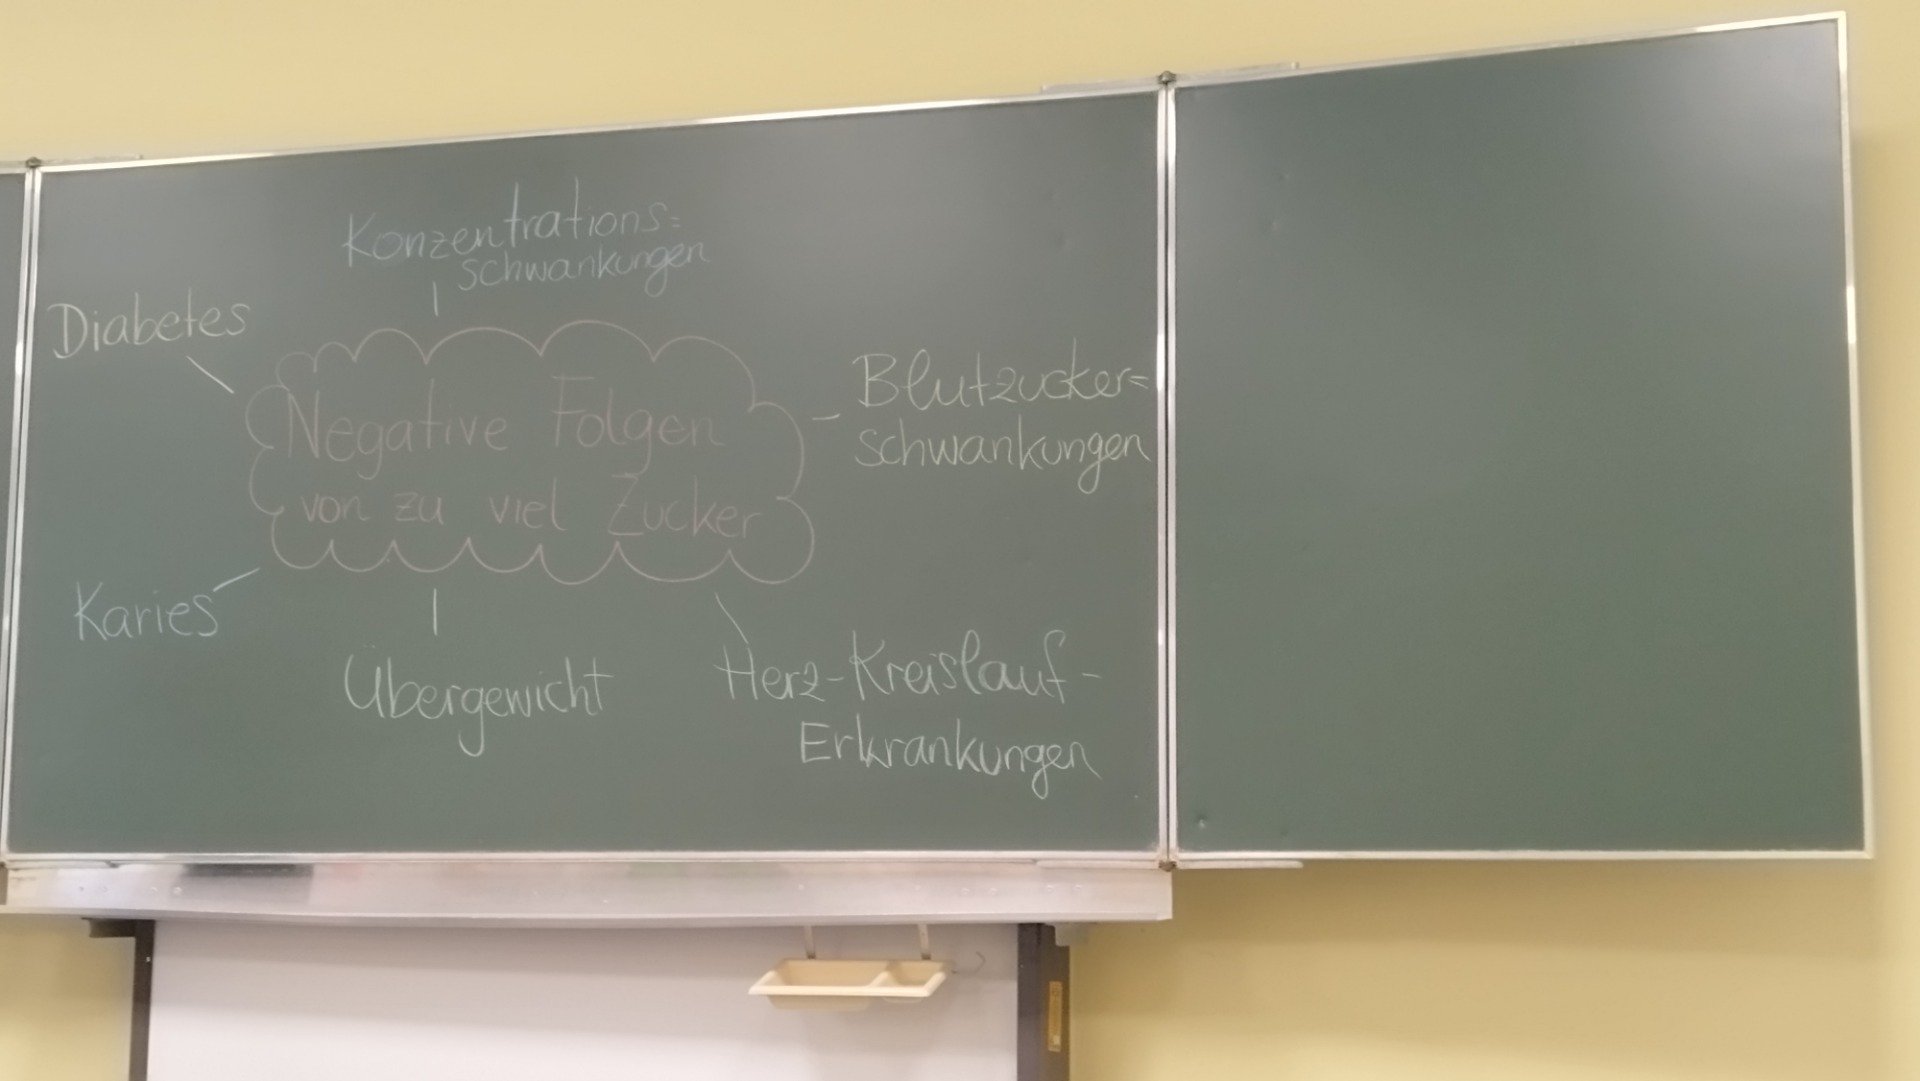 Konzentrations=
schwankungen
Diabetes
Negative Folgen
von zu viel Zucker
Blutzucker=
schwankungen
Karies
Übergewicht
Herz-Kreislauf-
Erkrankungen